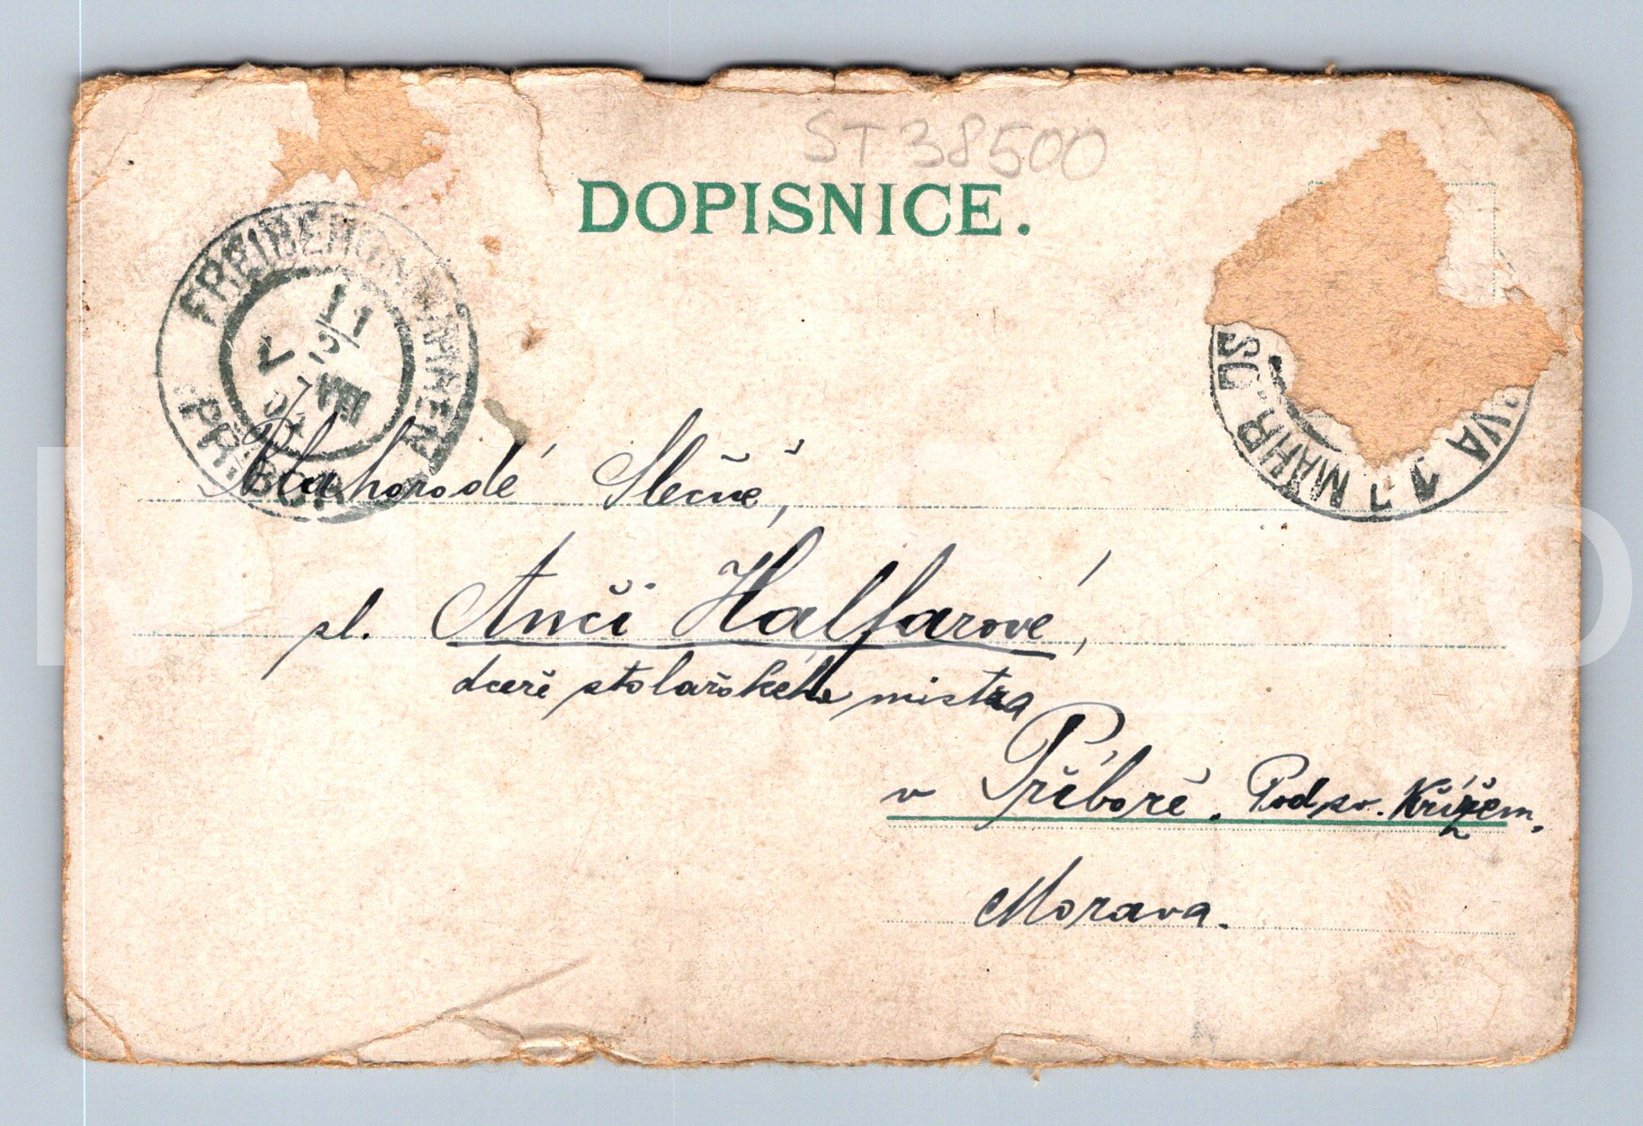 ST 38500
DOPISNICE.
FREIBERG IN MÄHREN
PŘÍBOR
MÄHR.
Blahorodé Slečně,
sl. Anči Halfarové,
dceři stolařského mistra
v Příboře. Pod sv. Křížem.
Morava.